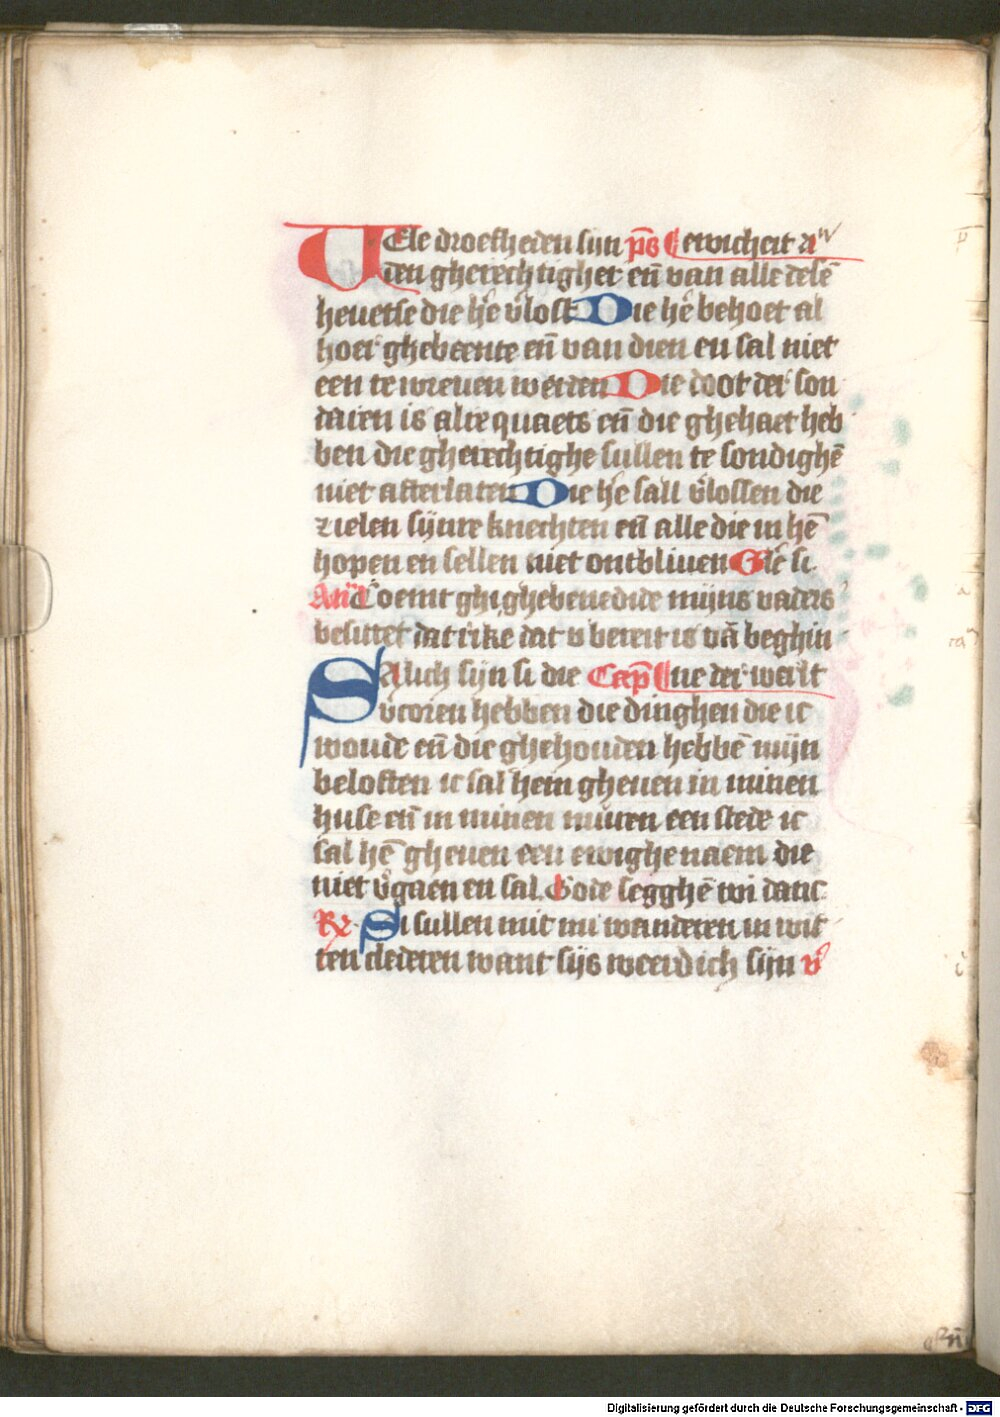 Uele droefheden sijn ps ewicheit a
den gherechtighet eñ van alle desē
heuetse die hē v̄lost Die hē behoet al
hoer ghebeente eñ van dien en sal niet
een te wreuen werden Die doot der son
daren is alre quaets eñ die ghehaet heb
ben die gherechtighe sullen te sondighē
niet afterlaten Die hē sall v̄lossen die
zielen sijnre knechten eñ alle die in hē
hopen en sellen niet ontbliuen Glē si.
Añ Coemt ghi ghebenedide mijns vaders
besittet dat rike dat v bereit is vā beghin
Salich sijn si die Cap ne der werlt
vcoren hebben die dinghen die ic
woude eñ die ghehouden hebbē mijn
beloften ic sal hem gheuen in minen
huse eñ in minen muren een stede ic
sal hē gheuen een ewighe naem die
niet v̄gaen en sal Gode segghē wi danc
R Si sullen mit mi wanderen in wit
ten clederen want sijs weerdich sijn v
Digitalisierung gefördert durch die Deutsche Forschungsgemeinschaft - DFG